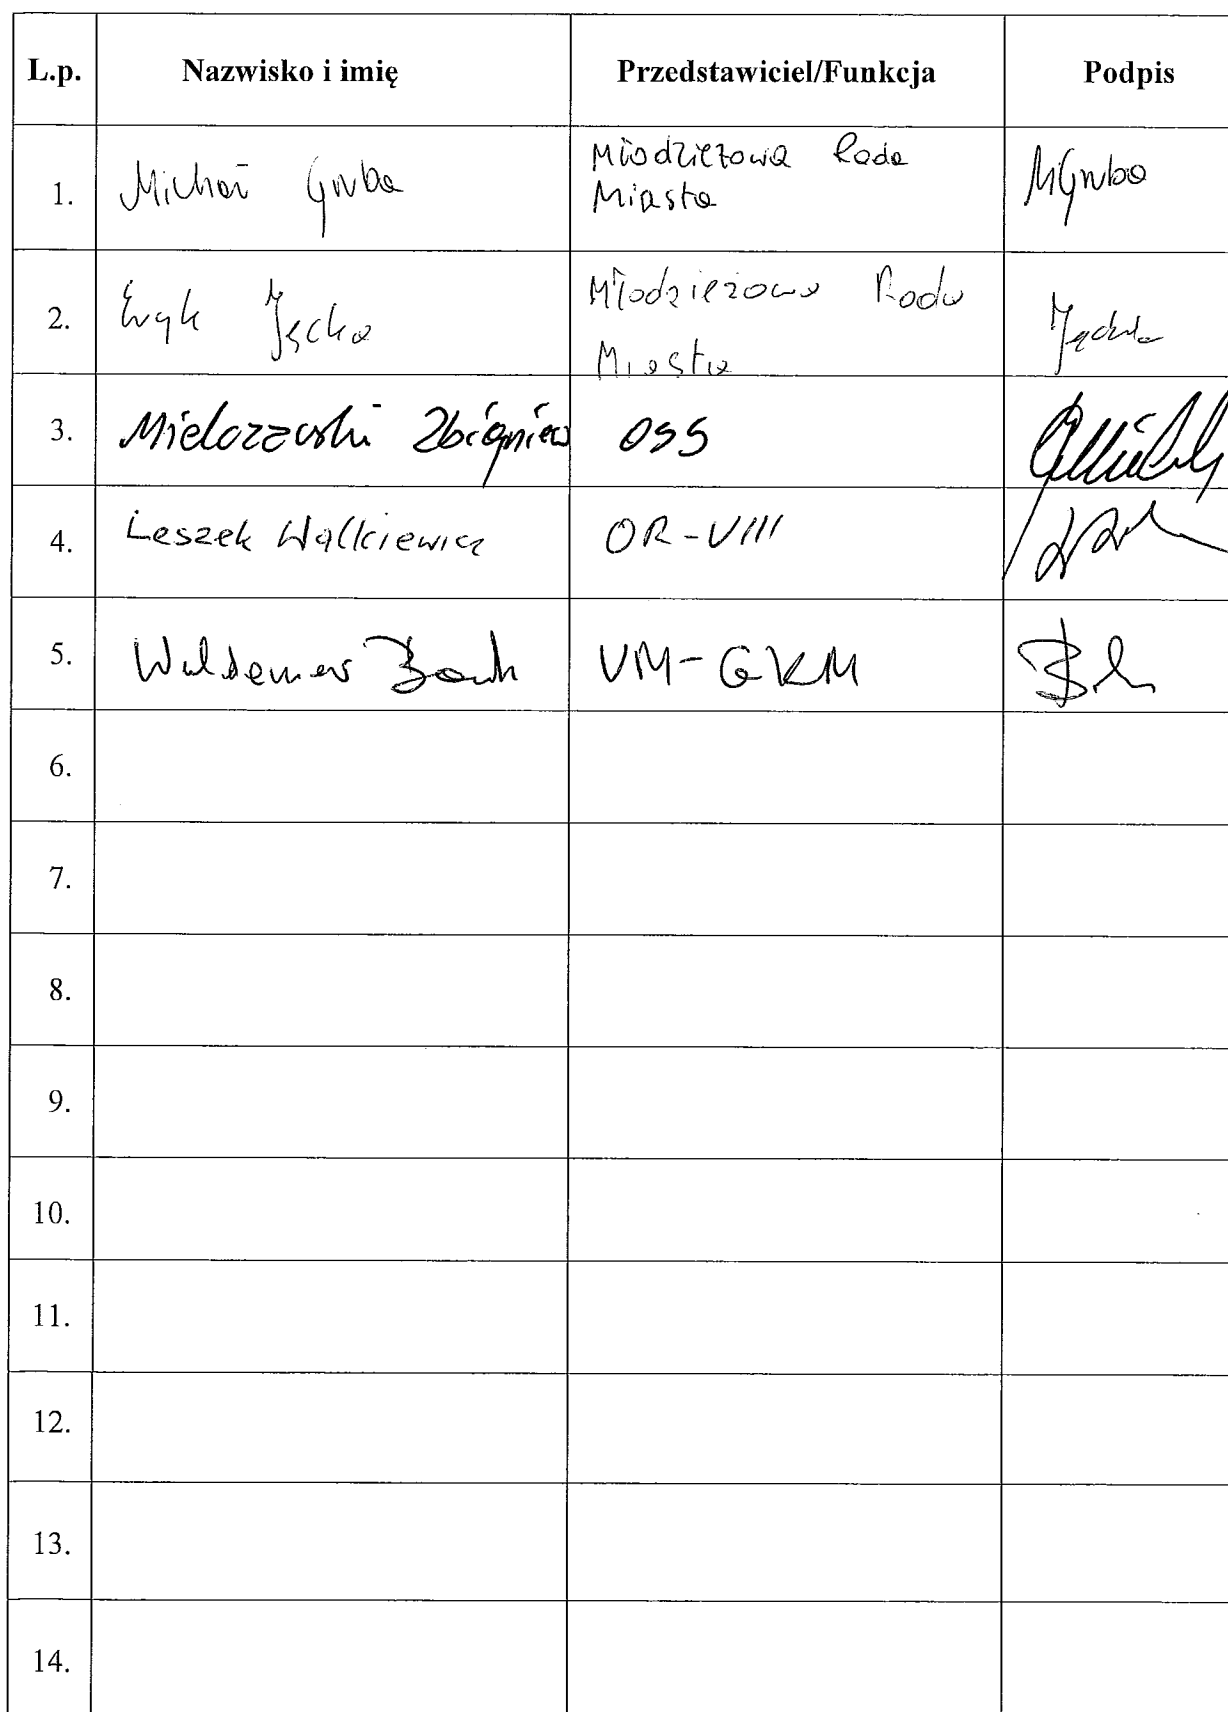 L.p. Nazwisko i imię Przedstawiciel/Funkcja Podpis
1. Michał Gruba Młodzieżowa Rada
Miasta MGruba
2. Eryk Młodzieżowa Rada
Miasta
3. Mielczarski Zbigniew OSS
4. Leszek Walkiewicz OR-VIII
5. Waldemar UM-GKM
6.
7.
8.
9.
10.
11.
12.
13.
14.